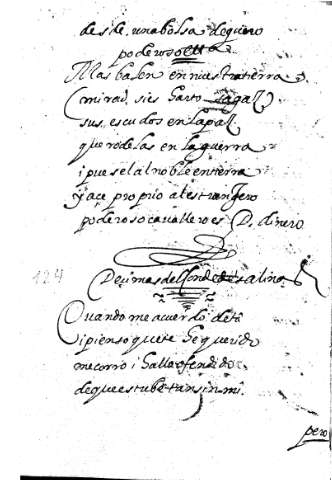 desde una bolsa de quero
poderoso etta
Mas balen en nuestra tierra
(mirad, si es harto sagaz)
sus escudos en la paz
que rodelas en la guerra
i pues el al noble entierra
y aze proprio al estranjero
poderoso cavallero es D. dinero
124
Decimas del Conde de salinas
Quando me acuerdo de ti
i pienso que te he querido
me corro i hallo ofendido
de que estube tan sin mi.
pero